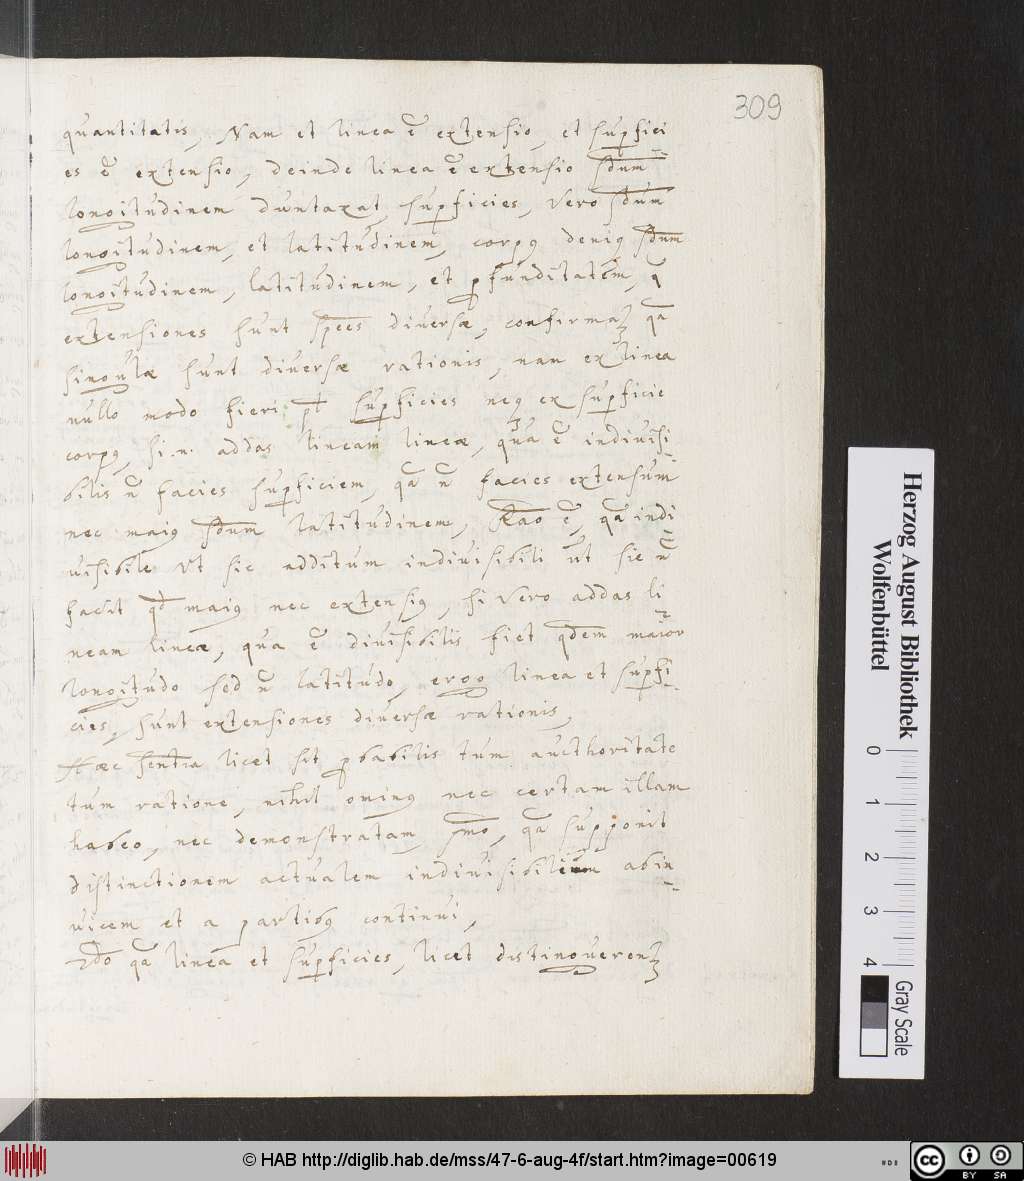 309
quantitatis, Nam et linea ē extensio, et supfici
es ē extensio, deinde linea ē extensio sdum
longitudinem duntaxat, supficies, vero sdum
longitudinem, et latitudinem, corpꝰ deniq sdum
longitudinem, latitudinem, et pfunditatem, q
extensiones sunt spēes diversæ, confirmaꝶ qa
singulæ sunt diversæ rationis, nam ex linea
nullo modo fieri pt supficies neq ex supficie
corpꝰ, si .n. addas lineam lineæ, qua ē indivisi
bilis ñ facies supficiem, qa ñ facies extensum
nec maiꝰ sdum latitudinem, Rao ē, qa indi
visibile ut sic additum indivisibili ut sic ñ
facit qd maiꝰ nec extensiꝰ, si vero addas li
neam lineæ, qua ē divisibilis fiet qdem maior
longitudo sed ñ latitudo, ergo linea et supfi
cies, sunt extensiones diversæ rationis,
Hæc sentia licet sit pbabilis tum aucthoritate
tum ratione, nihil ominꝰ nec certam illam
habeo, nec demonstratam, pmo, qa supponit
distinctionem actualem indivisibilium abin
vicem et a partibꝰ continui,
2do qa linea et supficies, licet distinguerenꝶ
Herzog August Bibliothek
Wolfenbüttel
0 1 2 3 4
Gray Scale
© HAB http://diglib.hab.de/mss/47-6-aug-4f/start.htm?image=00619
cc BY SA